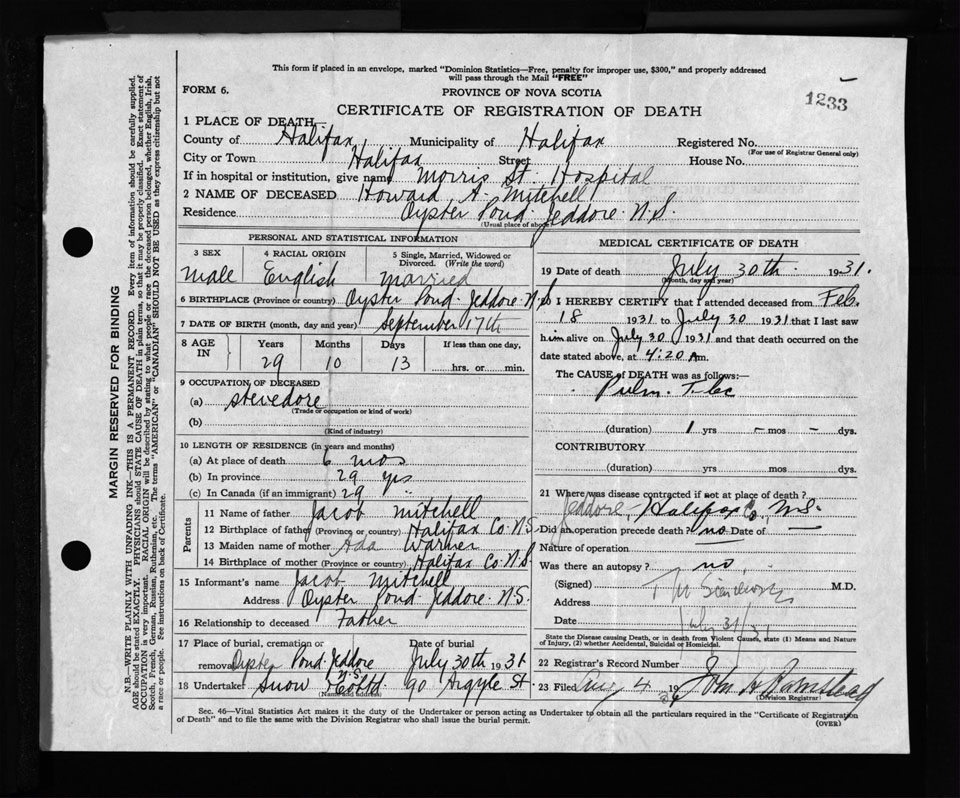 This form if placed in an envelope, marked "Dominion Statistics—Free, penalty for improper use, $300," and properly addressed
will pass through the Mail "FREE"
FORM 6.
PROVINCE OF NOVA SCOTIA
1233
CERTIFICATE OF REGISTRATION OF DEATH
1 PLACE OF DEATH—
County of Halifax Municipality of Halifax Registered No.
(For use of Registrar General only)
City or Town Halifax Street House No.
If in hospital or institution, give name Morris St. Hospital
2 NAME OF DECEASED Howard A. Mitchell
Residence Oyster Pond Jeddore N.S.
(Usual place of abode)
PERSONAL AND STATISTICAL INFORMATION
3 SEX 4 RACIAL ORIGIN 5 Single, Married, Widowed or
Divorced. (Write the word)
Male English Married
6 BIRTHPLACE (Province or country) Oyster Pond Jeddore N.S
7 DATE OF BIRTH (month, day and year) September 17th
8 AGE IN Years Months Days If less than one day,
29 10 13 hrs. or min.
9 OCCUPATION OF DECEASED
(a) Stevedore
(Trade or occupation or kind of work)
(b)
(Kind of industry)
10 LENGTH OF RESIDENCE (in years and months)
(a) At place of death 6 mos
(b) In province 29 yrs
(c) In Canada (if an immigrant) 29 "
Parents
11 Name of father Jacob Mitchell
12 Birthplace of father (Province or country) Halifax Co. N.S.
13 Maiden name of mother Ada Warner
14 Birthplace of mother (Province or country) Halifax Co. N.S.
15 Informant's name Jacob Mitchell
Address Oyster Pond Jeddore N.S.
16 Relationship to deceased Father
17 Place of burial, cremation or removal Oyster Pond Jeddore N.S. Date of burial July 30th 1931
18 Undertaker Snow & Co Ltd 90 Argyle St.
MEDICAL CERTIFICATE OF DEATH
19 Date of death July 30th 1931.
(Month, day and year)
20 I HEREBY CERTIFY that I attended deceased from Feb.
18 1931 to July 30 1931 that I last saw
him alive on July 30 1931 and that death occurred on the
date stated above, at 4:20 am.
The CAUSE of DEATH was as follows:—
Pulm. T-bc
(duration) 1 yrs — mos — dys.
CONTRIBUTORY
(duration) yrs. mos. dys.
21 Where was disease contracted if not at place of death?
Jeddore, Halifax Co, N.S.
Did an operation precede death? no Date of —
Nature of operation —
Was there an autopsy? no
(Signed) M.D.
Address
Date July 31/31
State the Disease causing Death, or in death from Violent Causes, state (1) Means and Nature
of Injury, (2) whether Accidental, Suicidal or Homicidal.
22 Registrar's Record Number
23 Filed Aug 4 19
(Division Registrar)
Sec. 46—Vital Statistics Act makes it the duty of the Undertaker or person acting as Undertaker to obtain all the particulars required in the "Certificate of Registration
of Death" and to file the same with the Division Registrar who shall issue the burial permit.
(OVER)
MARGIN RESERVED FOR BINDING
N.B.—WRITE PLAINLY WITH UNFADING INK—THIS IS A PERMANENT RECORD. Every item of information should be carefully supplied.
AGE should be stated EXACTLY. PHYSICIANS should STATE CAUSE OF DEATH in plain terms, so that it may be properly classified. Exact statement of
OCCUPATION is very important. RACIAL ORIGIN will be described by stating to what people or race the deceased person belonged, whether English, Irish,
Scotch, French, German, Russian, Ruthenian, etc. The terms "AMERICAN" or "CANADIAN" SHOULD NOT BE USED as they express citizenship but not
a race or people. See instructions on back of Certificate.